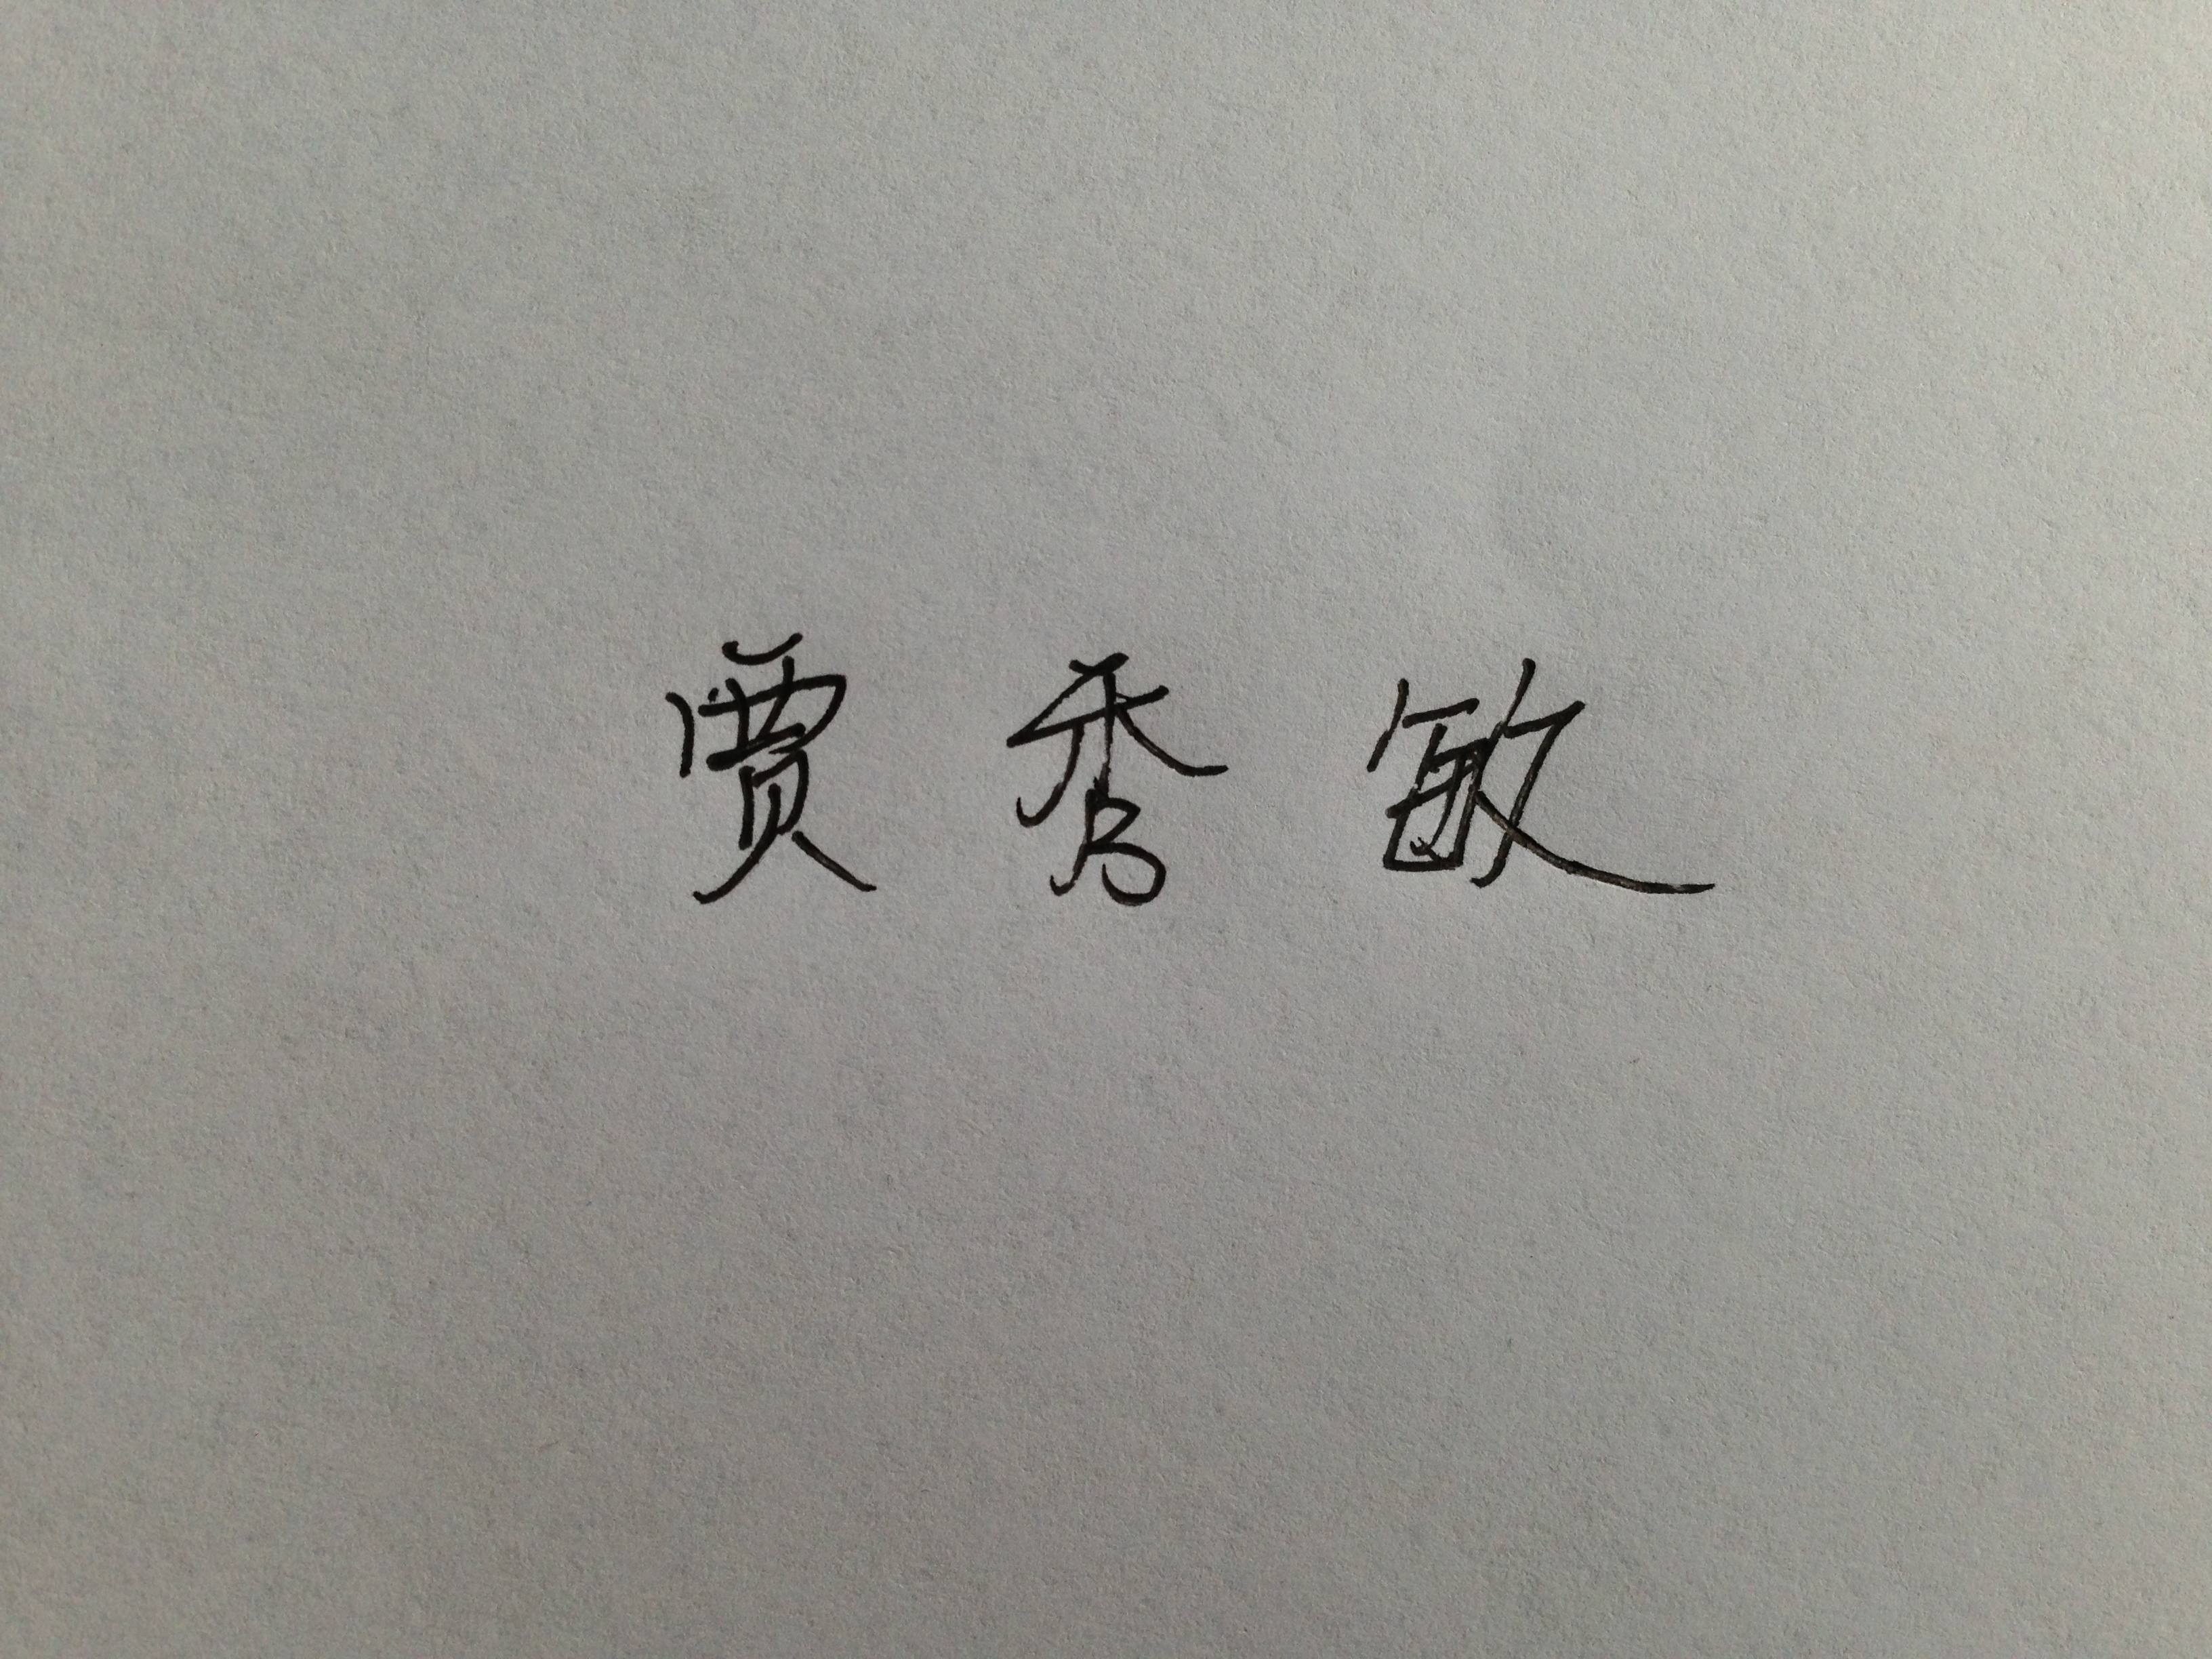 贾秀敏